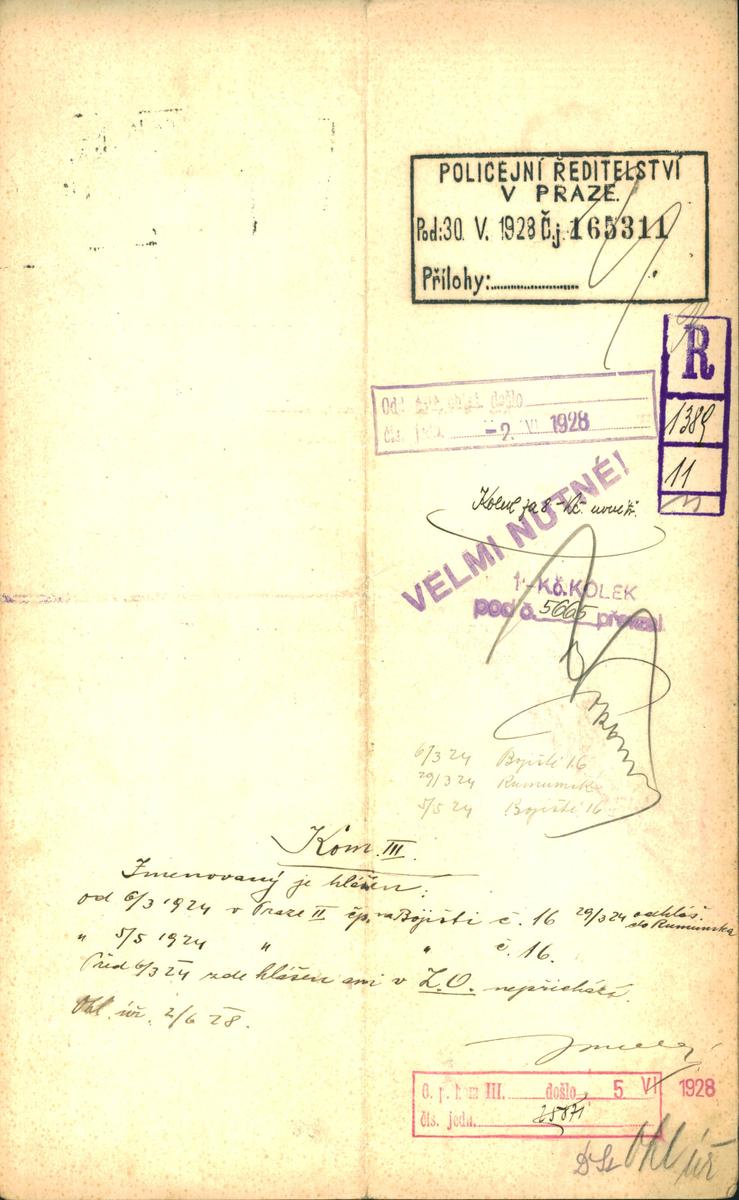 POLICEJNÍ ŘEDITELSTVÍ
V PRAZE.
Pod: 30. V. 1928 Č.j. 165311
Přílohy:
R
1389
11
Odd. došlo
čís. jedn. -2. VI 1928
Kolek za 8 Kč
VELMI NUTNÉ!
1-Kč. KOLEK
pod č. 5665 převzal
6/3 24 Bojišti 16
29/3 24 Rumunska
5/5 24 Bojišti 16
Kom. III.
Jmenovaný je hlášen:
od 6/3 1924 v Praze II čp. na Bojišti č. 16 29/3 24 odhláš.
do Rumunska
" 5/5 1924 " " č. 16.
Před 6/3 24 zde hlášen ani v Z.O. nepřichází.
Ohl. úř. 2/6 28.
O. p. kom III. došlo 5 VI 1928
čís. jedn. 25871
Ohl úř